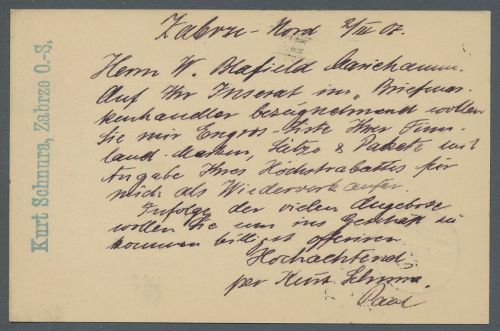 Kurt Schnura, Zabrze O.-S.
Zabrze-Nord 2/II 07.
Herrn W. Blafield Mariehamn.
Auf Ihr Inserat im „Briefmar-
kenhandler bezugnehmend wollen
Sie mir Engros-Liste Ihrer Finn-
land-Marken, Sätze & Pakete mit
Angabe Ihres Höchstrabattes für
mich als Wiederverkaufer.
Infolge der vielen Angebote
wollen Sie um ins Geschäft zu
kommen billigst offeriren.
Hochachtend
per Kurt Schnura